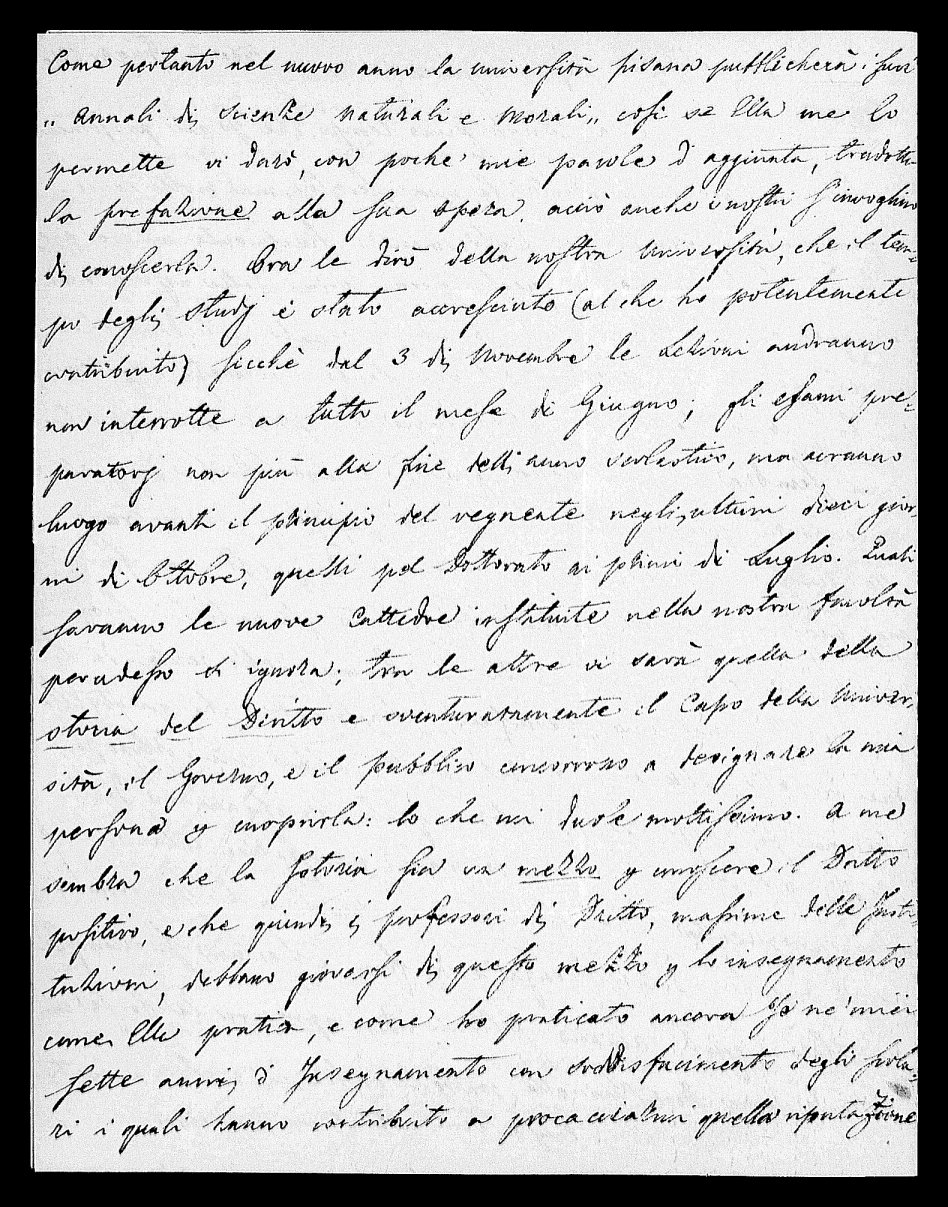 Come pertanto nel nuovo anno la università pisana pubblicherà i suoi
„ Annali di scienze naturali e morali „ così se Ella me lo
permette vi darò, con poche mie parole d'aggiunta, tradotta
la prefazione alla sua opera, acciò anche i nostri s'invoglino
di conoscerla. Ora le dirò della nostra Università, che il tem-
po degli studj è stato accresciuto (al che ho potentemente
contribuito) sicchè dal 3 di Novembre le Lezioni andranno
non interrotte a tutto il mese di Giugno; gli esami pre-
paratorj non più alla fine dell'anno scolastico, ma avranno
luogo avanti il principio del vegnente negli ultimi dieci gior-
ni di Ottobre, quelli pel Dottorato ai primi di Luglio. Quali
saranno le nuove Cattedre instituite nella nostra facoltà
per adesso si ignora; tra le altre vi sarà quella della
storia del Diritto e sventuratamente il Capo della Univer-
sità, il Governo, e il pubblico concorrono a designare la mia
persona p cuoprirla: lo che mi duole moltissimo. A me
sembra che la Istoria sia un mezzo p conoscere il Dritto
positivo, e che quindi i professori di Dritto, massime delle Insti-
tuzioni, debbano giovarsi di questo mezzo p lo insegnamento
come Ella pratica, e come ho praticato ancora Io ne' miei
sette anni d'Insegnamento con soddisfacimento degli scola-
ri i quali hanno contribuito a procacciarmi quella riputazione